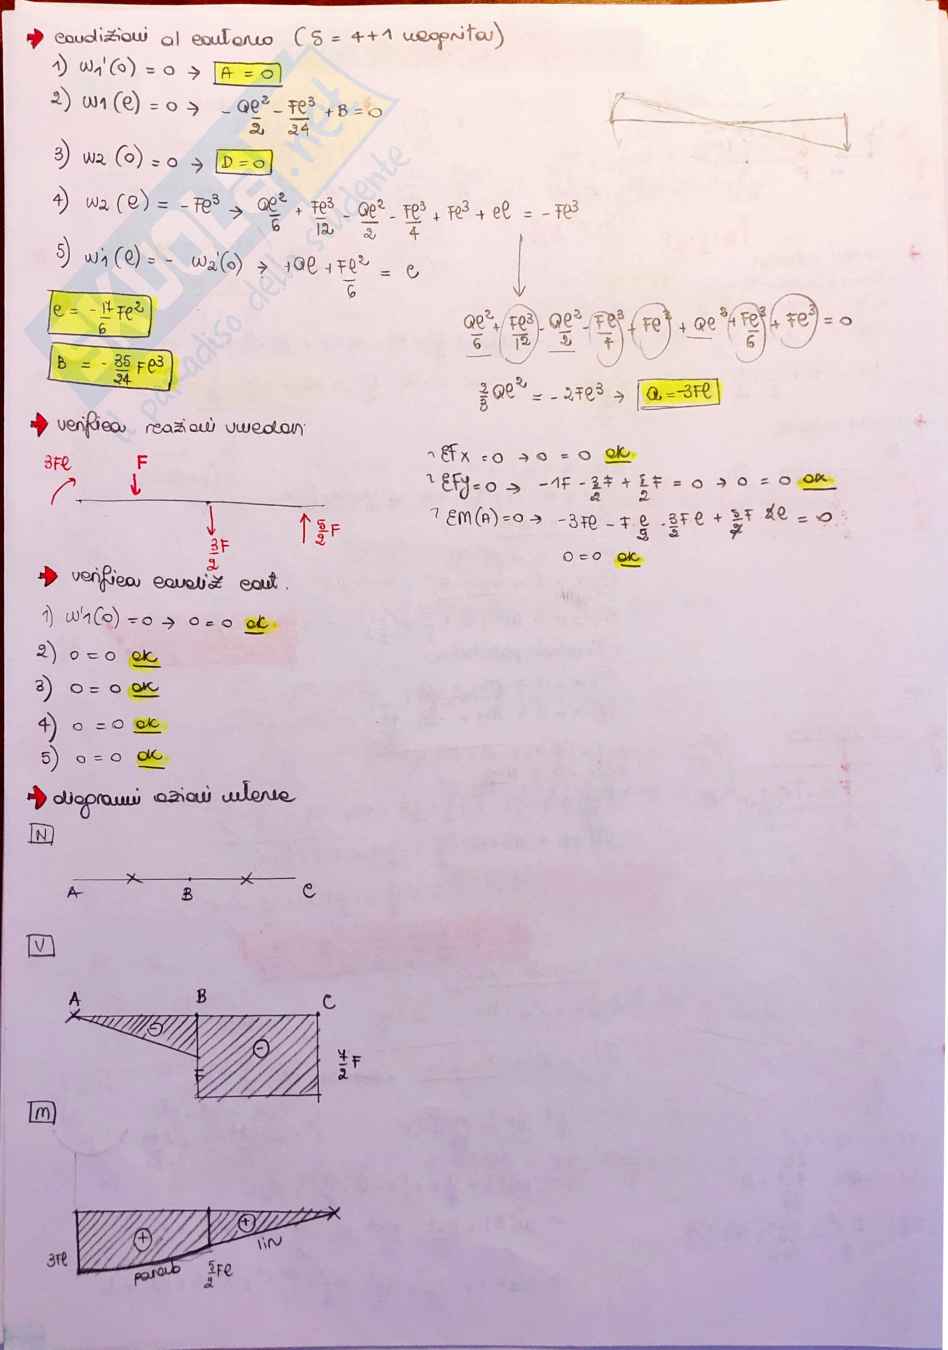 condizioni al contorno (5 = 4+1 incognita)
1) w1'(0) = 0 → A = 0
2) w1(l) = 0 → - Ql²/2 - Fl³/24 + B = 0
3) w2(0) = 0 → D = 0
4) w2(l) = -Fl³ → Ql²/6 + Fl³/12 - Ql²/2 - Fl³/4 + Fl³ + cl = -Fl³
5) w1'(l) = - w2'(0) → +Ql + Fl²/6 = c
Ql²/6 + Fl³/12 - Ql²/2 - Fl³/4 + Fl³ + Ql² + Fl³/6 + Fl³ = 0
c = - 17/6 Fl²
B = - 35/24 Fl³
2/3 Ql² = -2Fl³ → Q = -3Fl
verifica reazioni vincolari
3Fl F
3/2 F 5/2 F
ΣFx = 0 → 0 = 0 ok
ΣFy = 0 → -1F - 3/2 F + 5/2 F = 0 → 0 = 0 ok
ΣM(A) = 0 → -3Fl - F l/2 - 3/2 Fl + 5/2 F 2l = 0
0 = 0 ok
verifica condiz cont.
1) w'1(0) = 0 → 0 = 0 ok
2) 0 = 0 ok
3) 0 = 0 ok
4) 0 = 0 ok
5) 0 = 0 ok
diagrammi azioni interne
N
A B C
V
A B C
- -
F 7/2 F
M
+ +
3Fl parab 5/2 Fl lin
SKUOLA.net
il paradiso dello studente